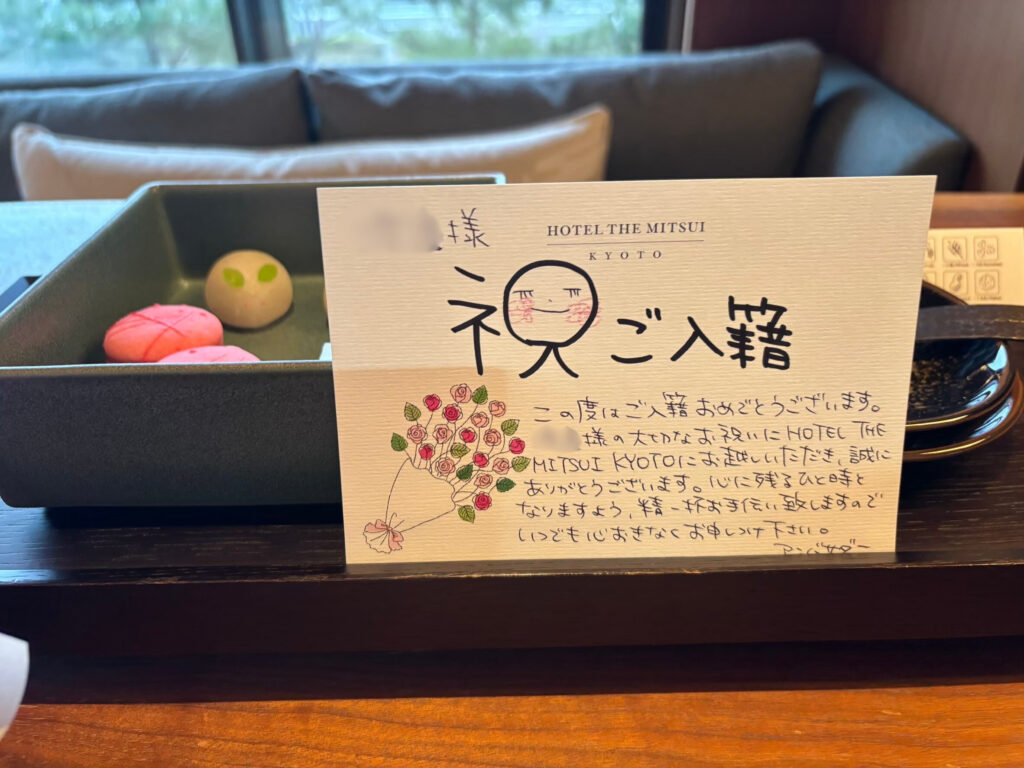 様
HOTEL THE MITSUI
KYOTO
祝ご入籍
この度はご入籍おめでとうございます。
様の大切なお祝いにHOTEL THE
MITSUI KYOTOにお越しいただき、誠に
ありがとうございます。心に残るひと時と
なりますよう、精一杯お手伝い致しますので
いつでも心おきなくお申しつけ下さい。
アンバサダー